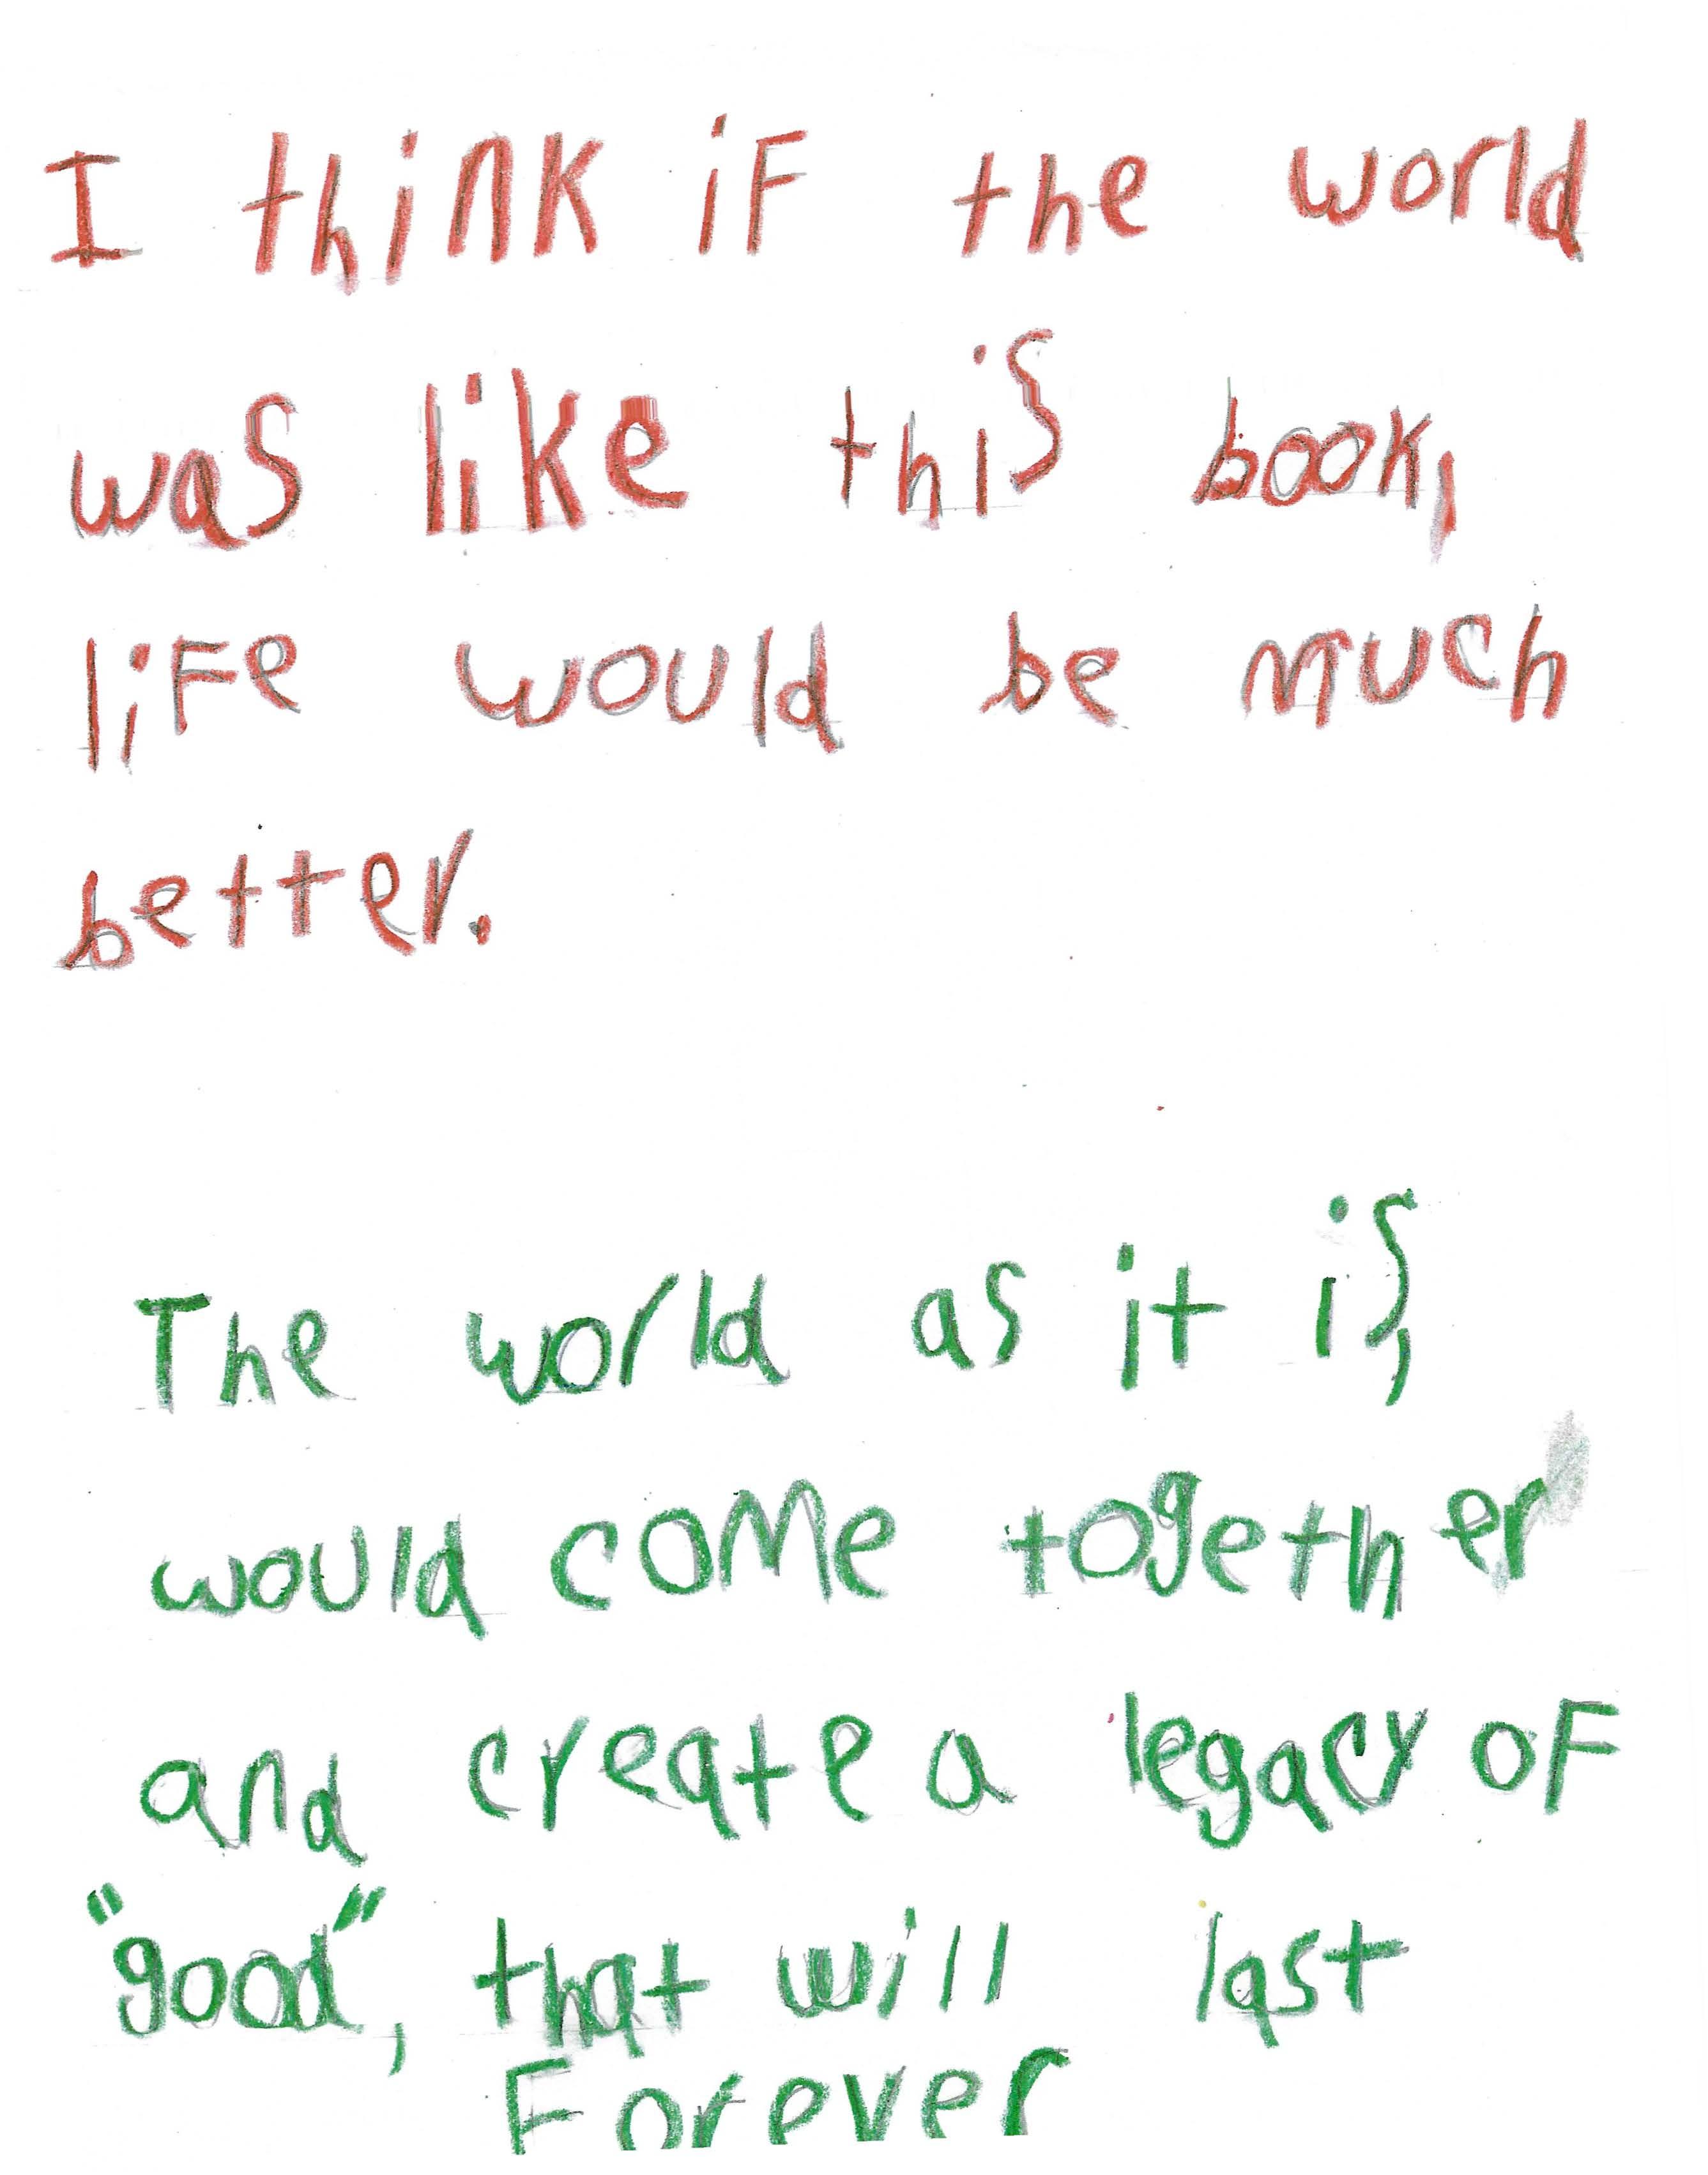 I think if the world
was like this book,
life would be much
better.
The world as it is,
would come together
and create a legacy of
"good", that will last
Forever